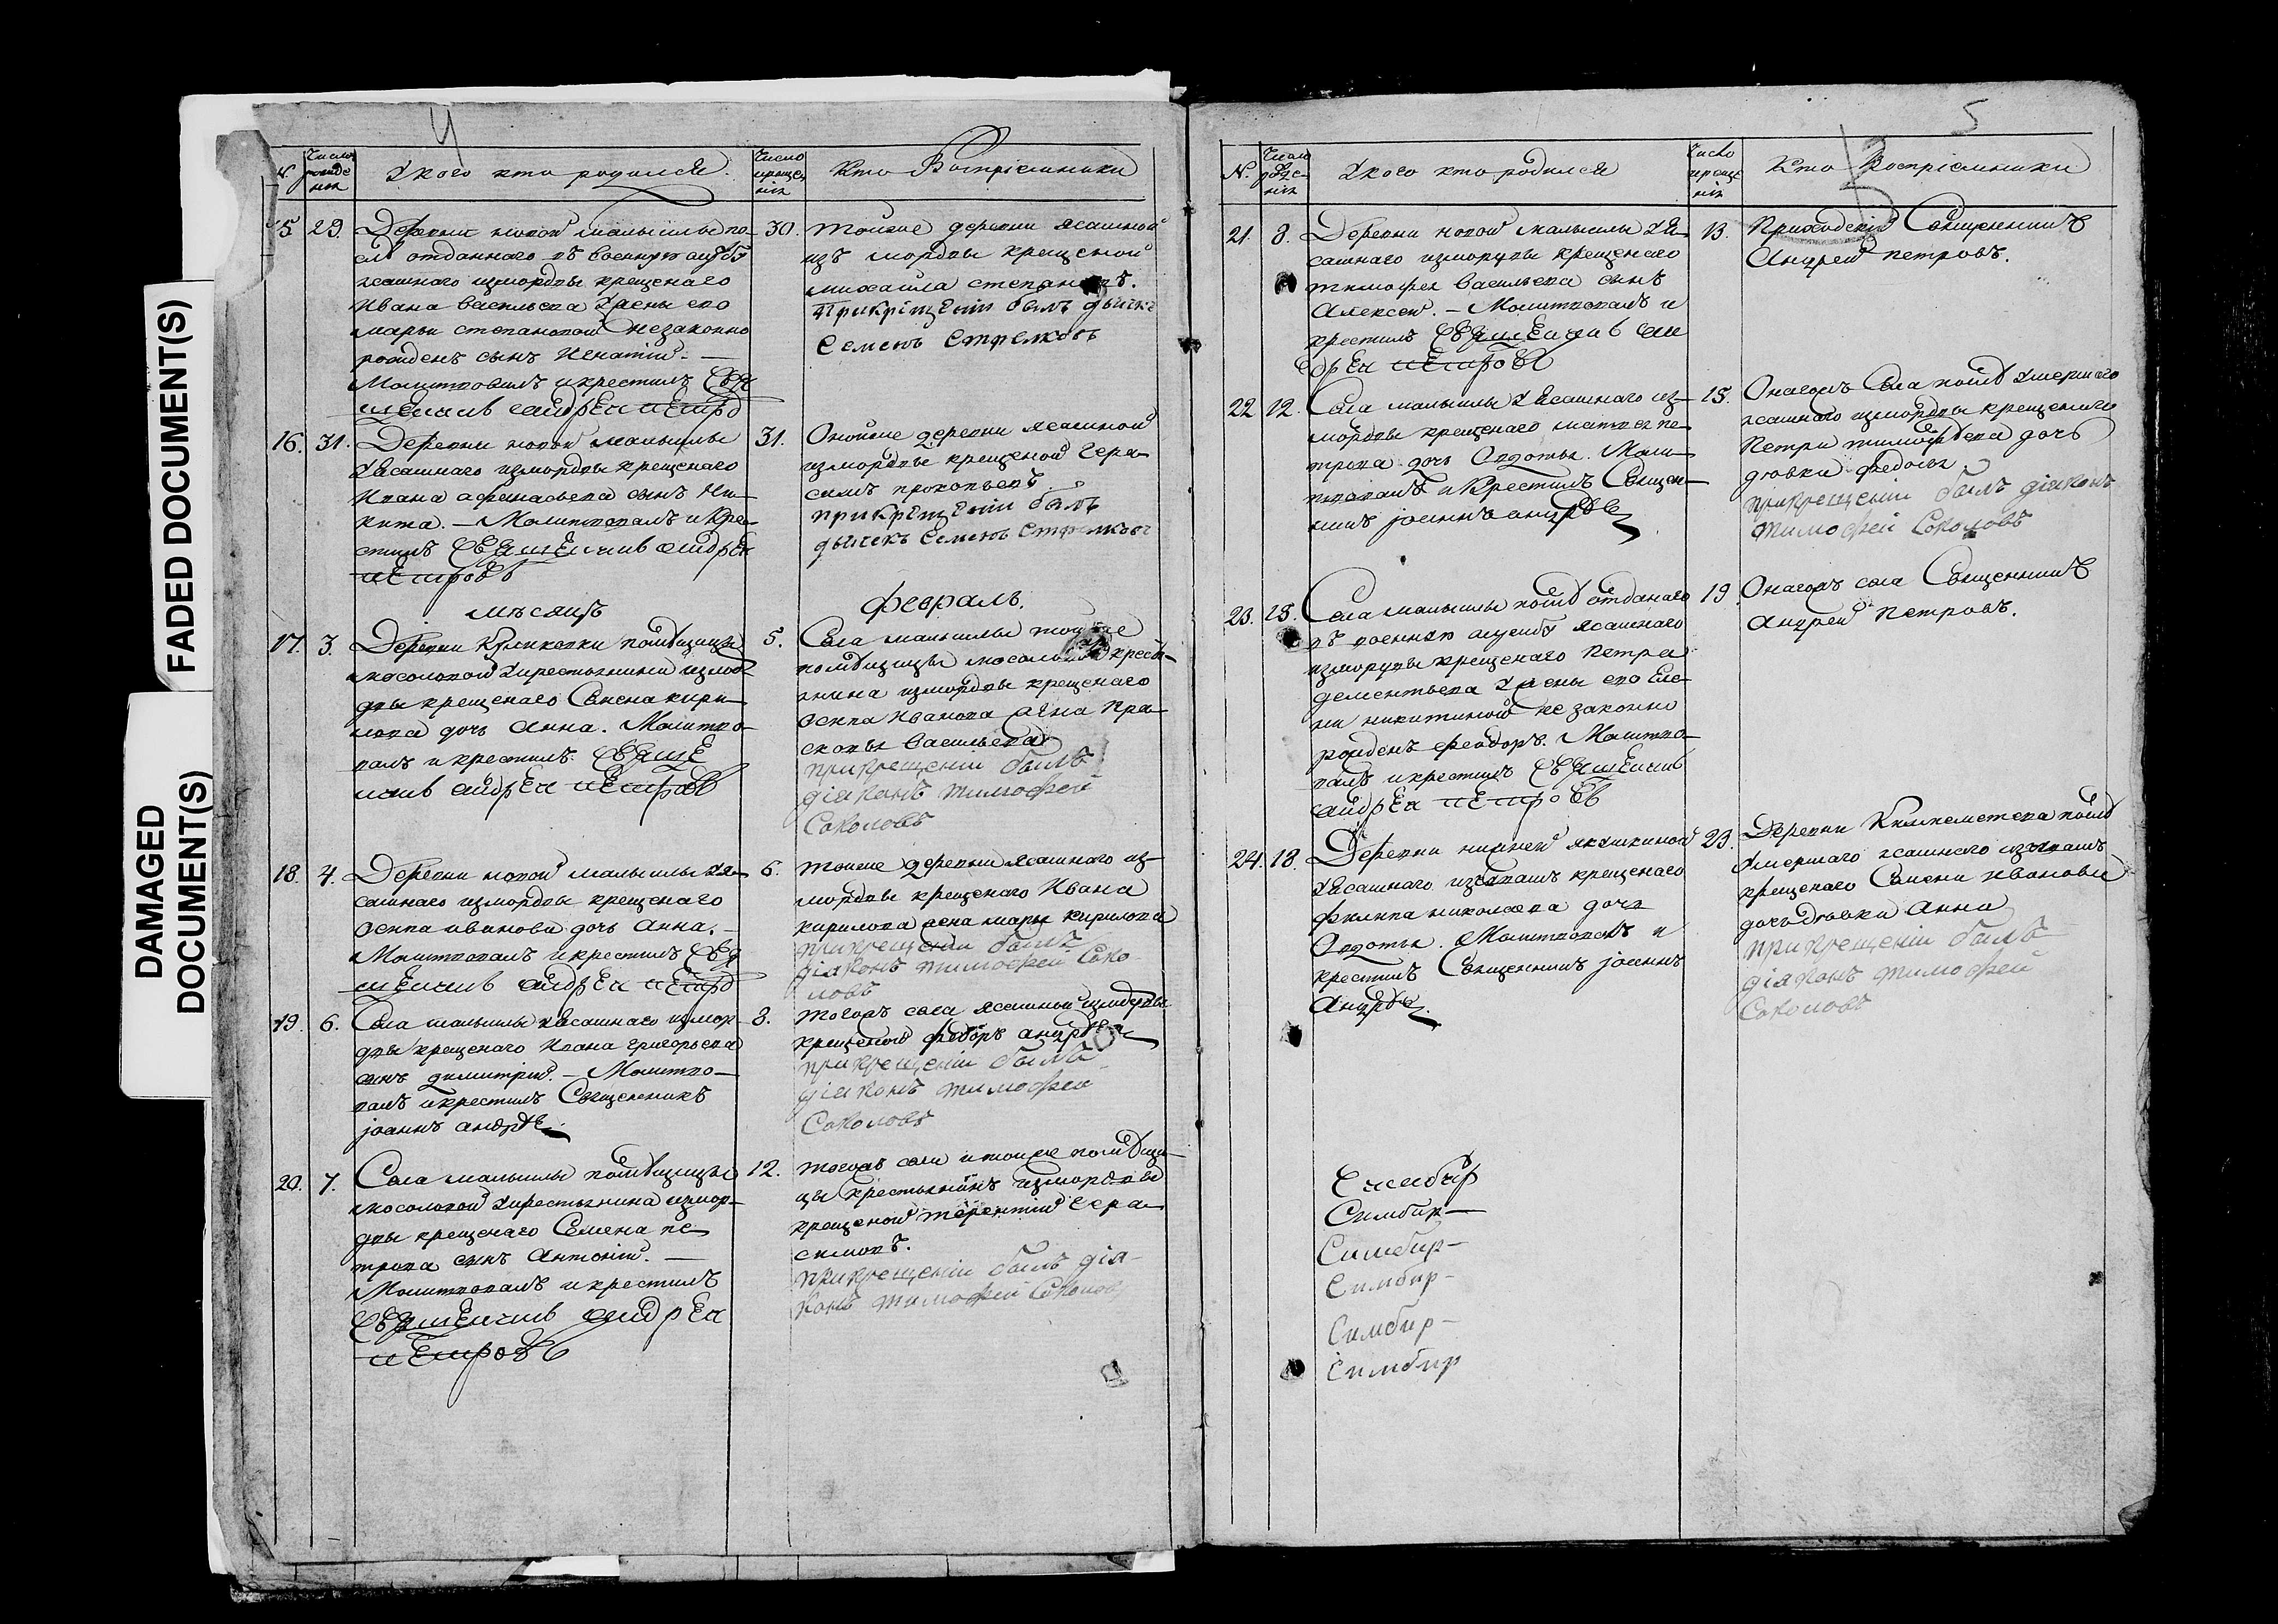 FADED DOCUMENT(S)
DAMAGED
DOCUMENT(S)
4
N.
Число
рожде
нія
У кого кто родился.
Число
креще
нія
Кто Воспріемники
15
29.
Деревни новой малыклы по
сл отданнаго въ военную службу
ясашнаго измордвы крещенаго
Ивана васильева У жены его
марьи степановой незаконно
рожденъ сынъ Игнатій. —
Молитвовалъ и крестилъ Свя
щенникъ андрей петров
30.
тойже деревни ясашной
изъ мордвы крещеной
михайла степановъ.
Прикрещеніи былъ дьячекъ
Семенъ Стрелковъ
16.
31.
Деревни новой малыклы
У ясашнаго измордвы крещенаго
Ивана афанасьева сынъ Ни-
кита. — Молитвовалъ и кре-
стилъ Священникъ андрей
петровъ
31.
Оной же деревни ясашной
измордвы крещеной Гера-
симъ прокопьевъ
прикрещеніи былъ
дьячекъ Семенъ Стрелковъ
мѣсяцъ
февраль.
17.
3.
Деревни Куликовки помѣщицы
мосоловой У крестьянина измор
двы крещенаго Семена кири-
лова дочь Анна. Молитво-
валъ и крестилъ Священ
никъ андрей петровъ
5.
Села малыклы тойже
помѣщицы мосоловой кресть-
янина измордвы крещенаго
осипа Иванова жена Пра-
сковья васильева
прикрещеніи былъ
діяконъ тимофей
Соколовъ
18.
4.
Деревни новой малыклы У я-
сашнаго измордвы крещенаго
осипа иванова дочь Анна. —
Молитвовалъ и крестилъ Свя
щенникъ андрей петров
6.
тойже деревни ясашнаго из-
мордвы крещенаго Ивана
кирилова жена марья кирилова
прикрещеніи былъ
діяконъ тимофей Соко-
ловъ
19.
6.
Села малыклы У ясашнаго измор-
двы крещенаго Ивана григорьева
сынъ димитрій. — Молитво-
валъ и крестилъ Священникъ
іоаннъ андрѣевъ.
8.
тогожъ села ясашной измордвы
крещеной федоръ андрѣевъ
прикрещеніи былъ
діяконъ тимофей
Соколовъ
20.
7.
Села малыклы помѣщицы
мосоловой У крестьянина измор-
двы крещенаго Семена пе-
трова сынъ Антоній. —
Молитвовалъ и крестилъ
Священникъ андрей
петровъ
12.
тогожъ села и тойже помѣщи-
цы крестьянинъ измордвы
крещеной терентій Гера-
симовъ.
прикрещеніи былъ дія-
конъ тимофей Соколов
5
N.
Число
рожде-
нія
У кого кто родился
Число
креще
нія
Кто Воспріемники
21.
8.
Деревни новой малыклы У я-
сашнаго измордвы крещенаго
тимофея васильева сынъ
Алексей. — Молитвовалъ и
крестилъ Священникъ ан
дрей петровъ
13.
Приходскій Священникъ
Андрей петровъ.
22
12.
Села малыклы У ясашнаго из-
мордвы крещенаго матвея пе-
трова дочь Овдотья. Моли-
твовалъ и Крестилъ Священ-
никъ іоаннъ андрѣевъ
15.
Онагожъ Села послѣ Умершаго
ясашнаго измордвы крещенаго
Петра тимофѣева дочь
дѣвка федосья
прикрещеніи былъ діяконъ
тимофей Соколовъ
23.
15.
Села малыклы послѣ отданаго
въ военную службу ясашнаго
измордвы крещенаго Петра
дементьева У жены его Еле-
ны никитиной незаконно
рожденъ феодоръ. Молитво-
валъ и крестилъ Священникъ
андрей петровъ
19.
Онагожъ села Священникъ
андрей Петровъ.
24.
18.
Деревни нижней якушкиной
У ясашнаго изчувашъ крещенаго
филипа николаева дочь
Овдотья. Молитвовалъ и
крестилъ Священникъ іоаннъ
Андрѣевъ.
23.
умершаго ясашнаго изчувашъ
крещенаго Семена Ивановa
дочь дѣвка Анна
прикрещеніи былъ
діяконъ тимофей
Соколовъ
Симбир
Симбир-
Симбир-
Симбир-
Симбир-
Симбир